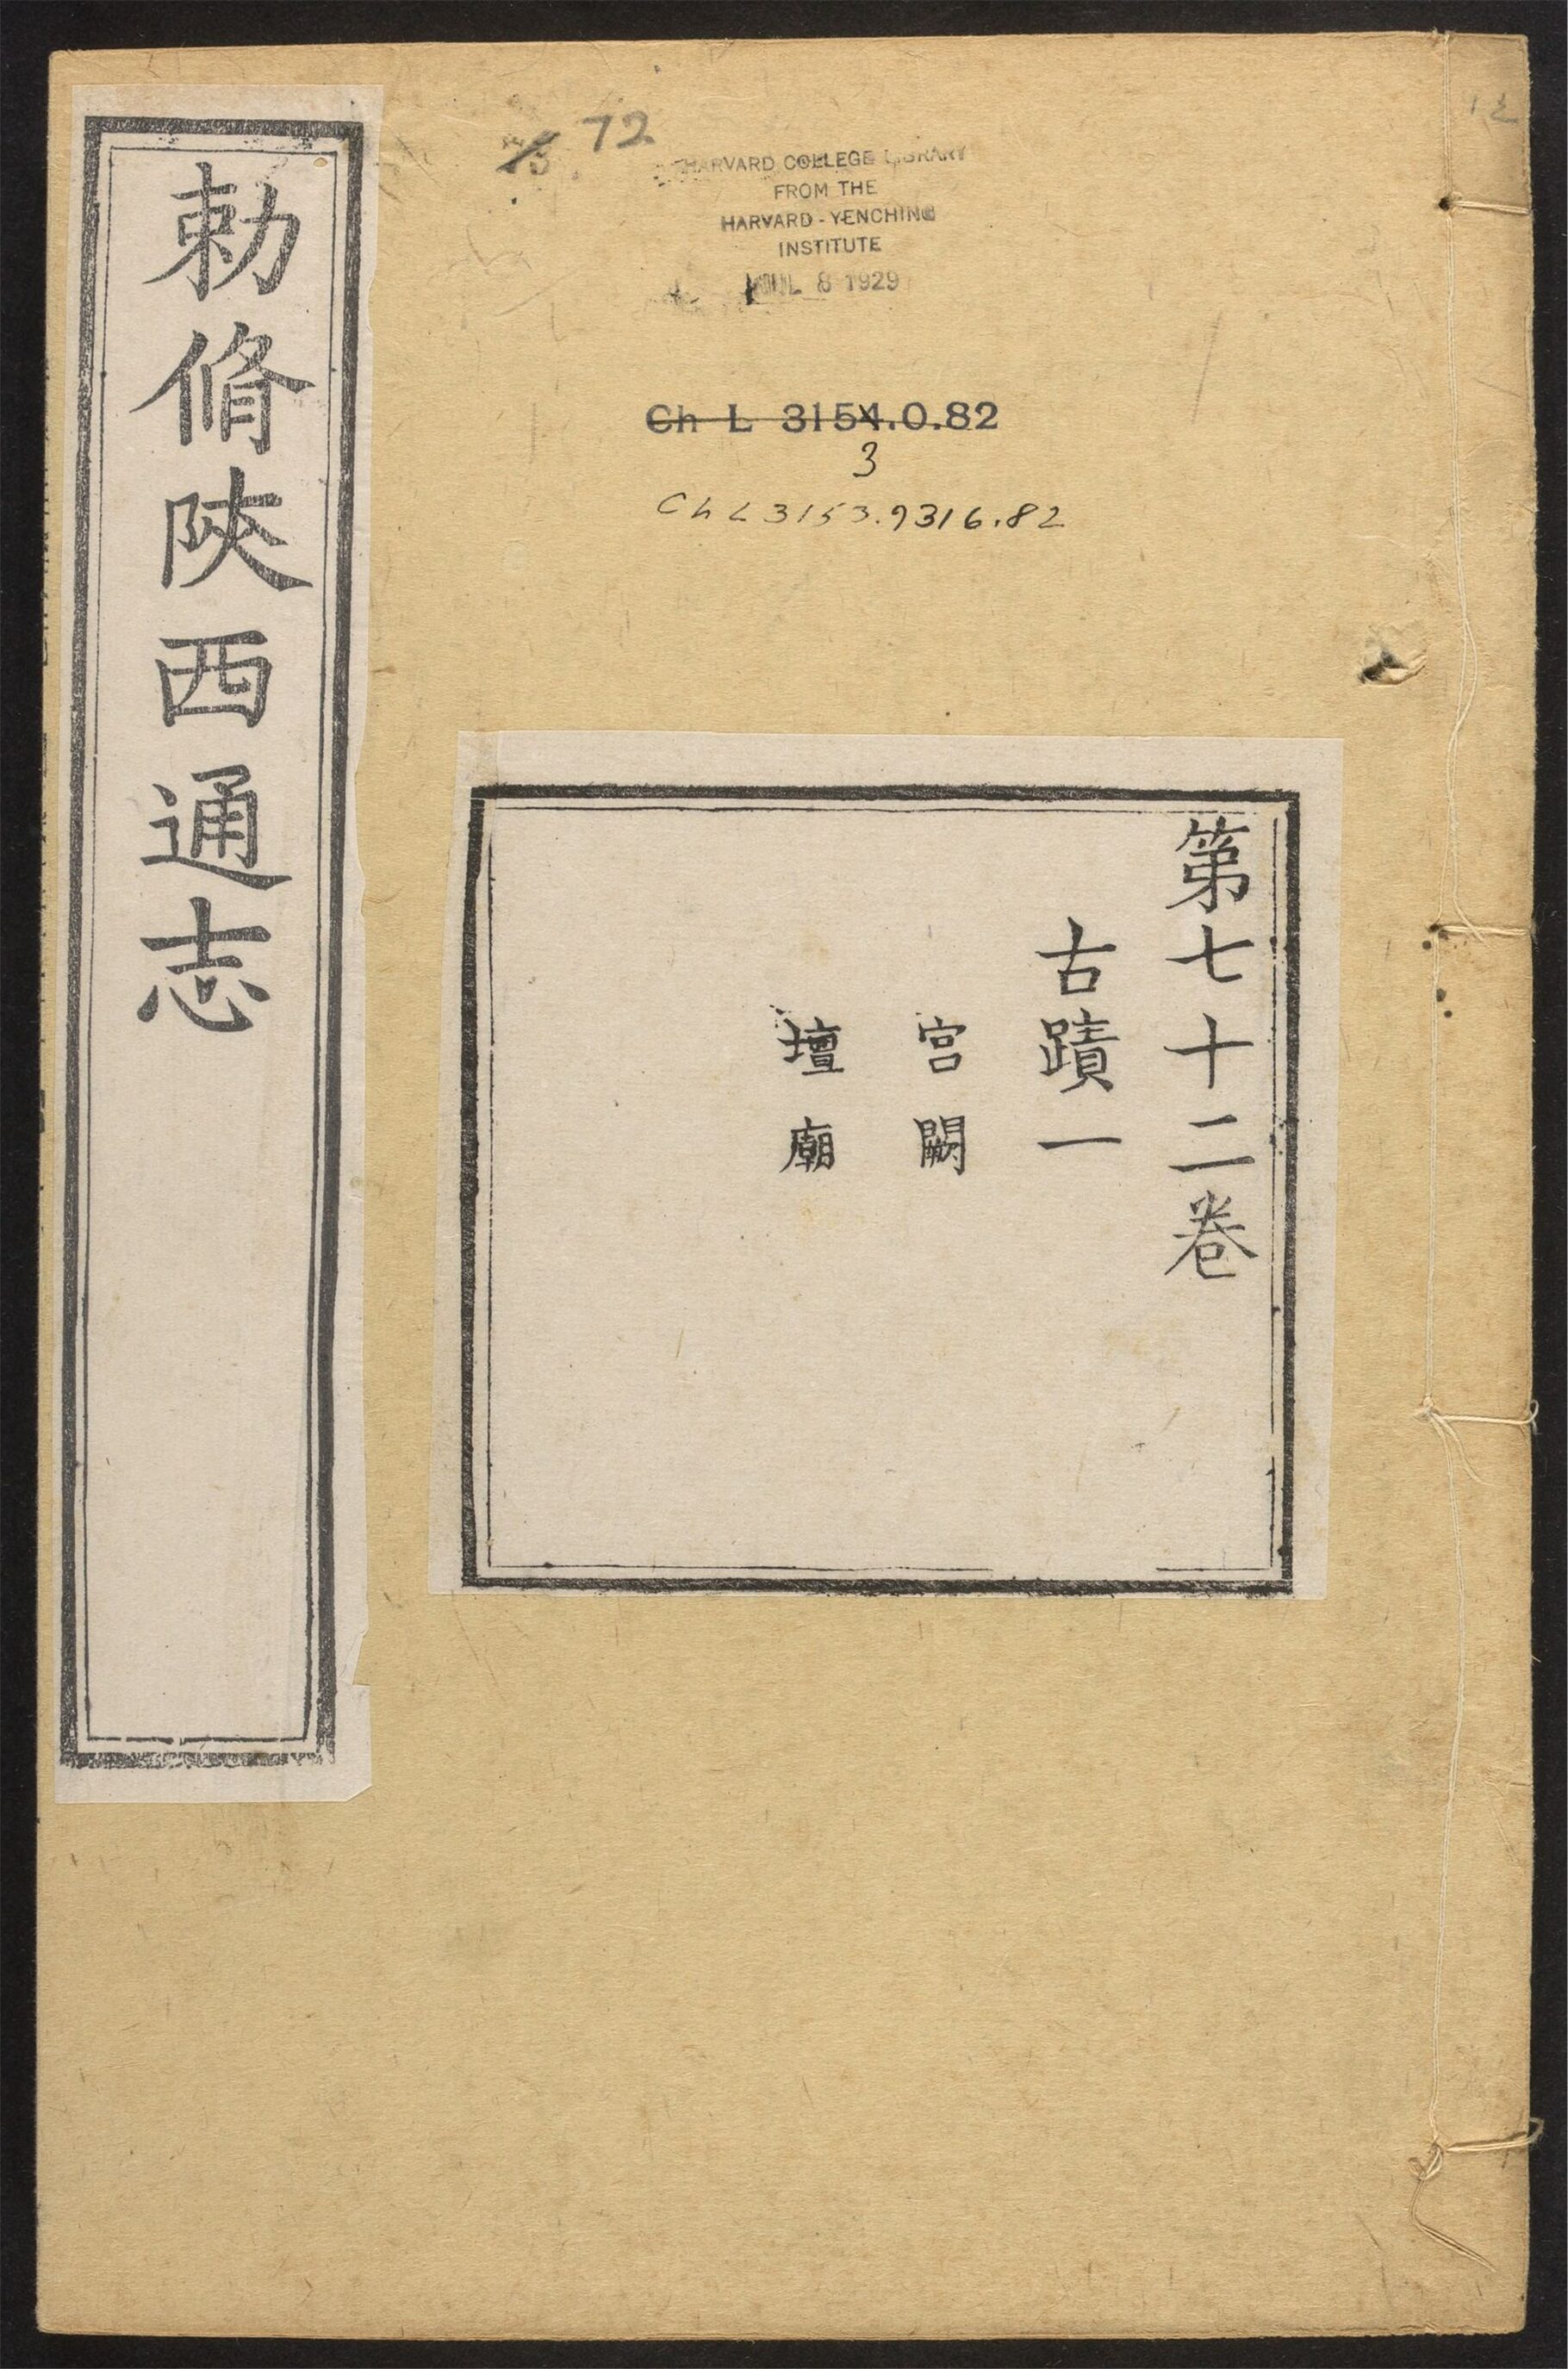 勅脩陝西通志
72
HARVARD COLLEGE LIBRARY
FROM THE
HARVARD-YENCHING
INSTITUTE
JUL 8 1929
Ch L 3154.0.82
3
Ch L 3153.9316.82
第七十二卷
古蹟一
宫闕
壇廟